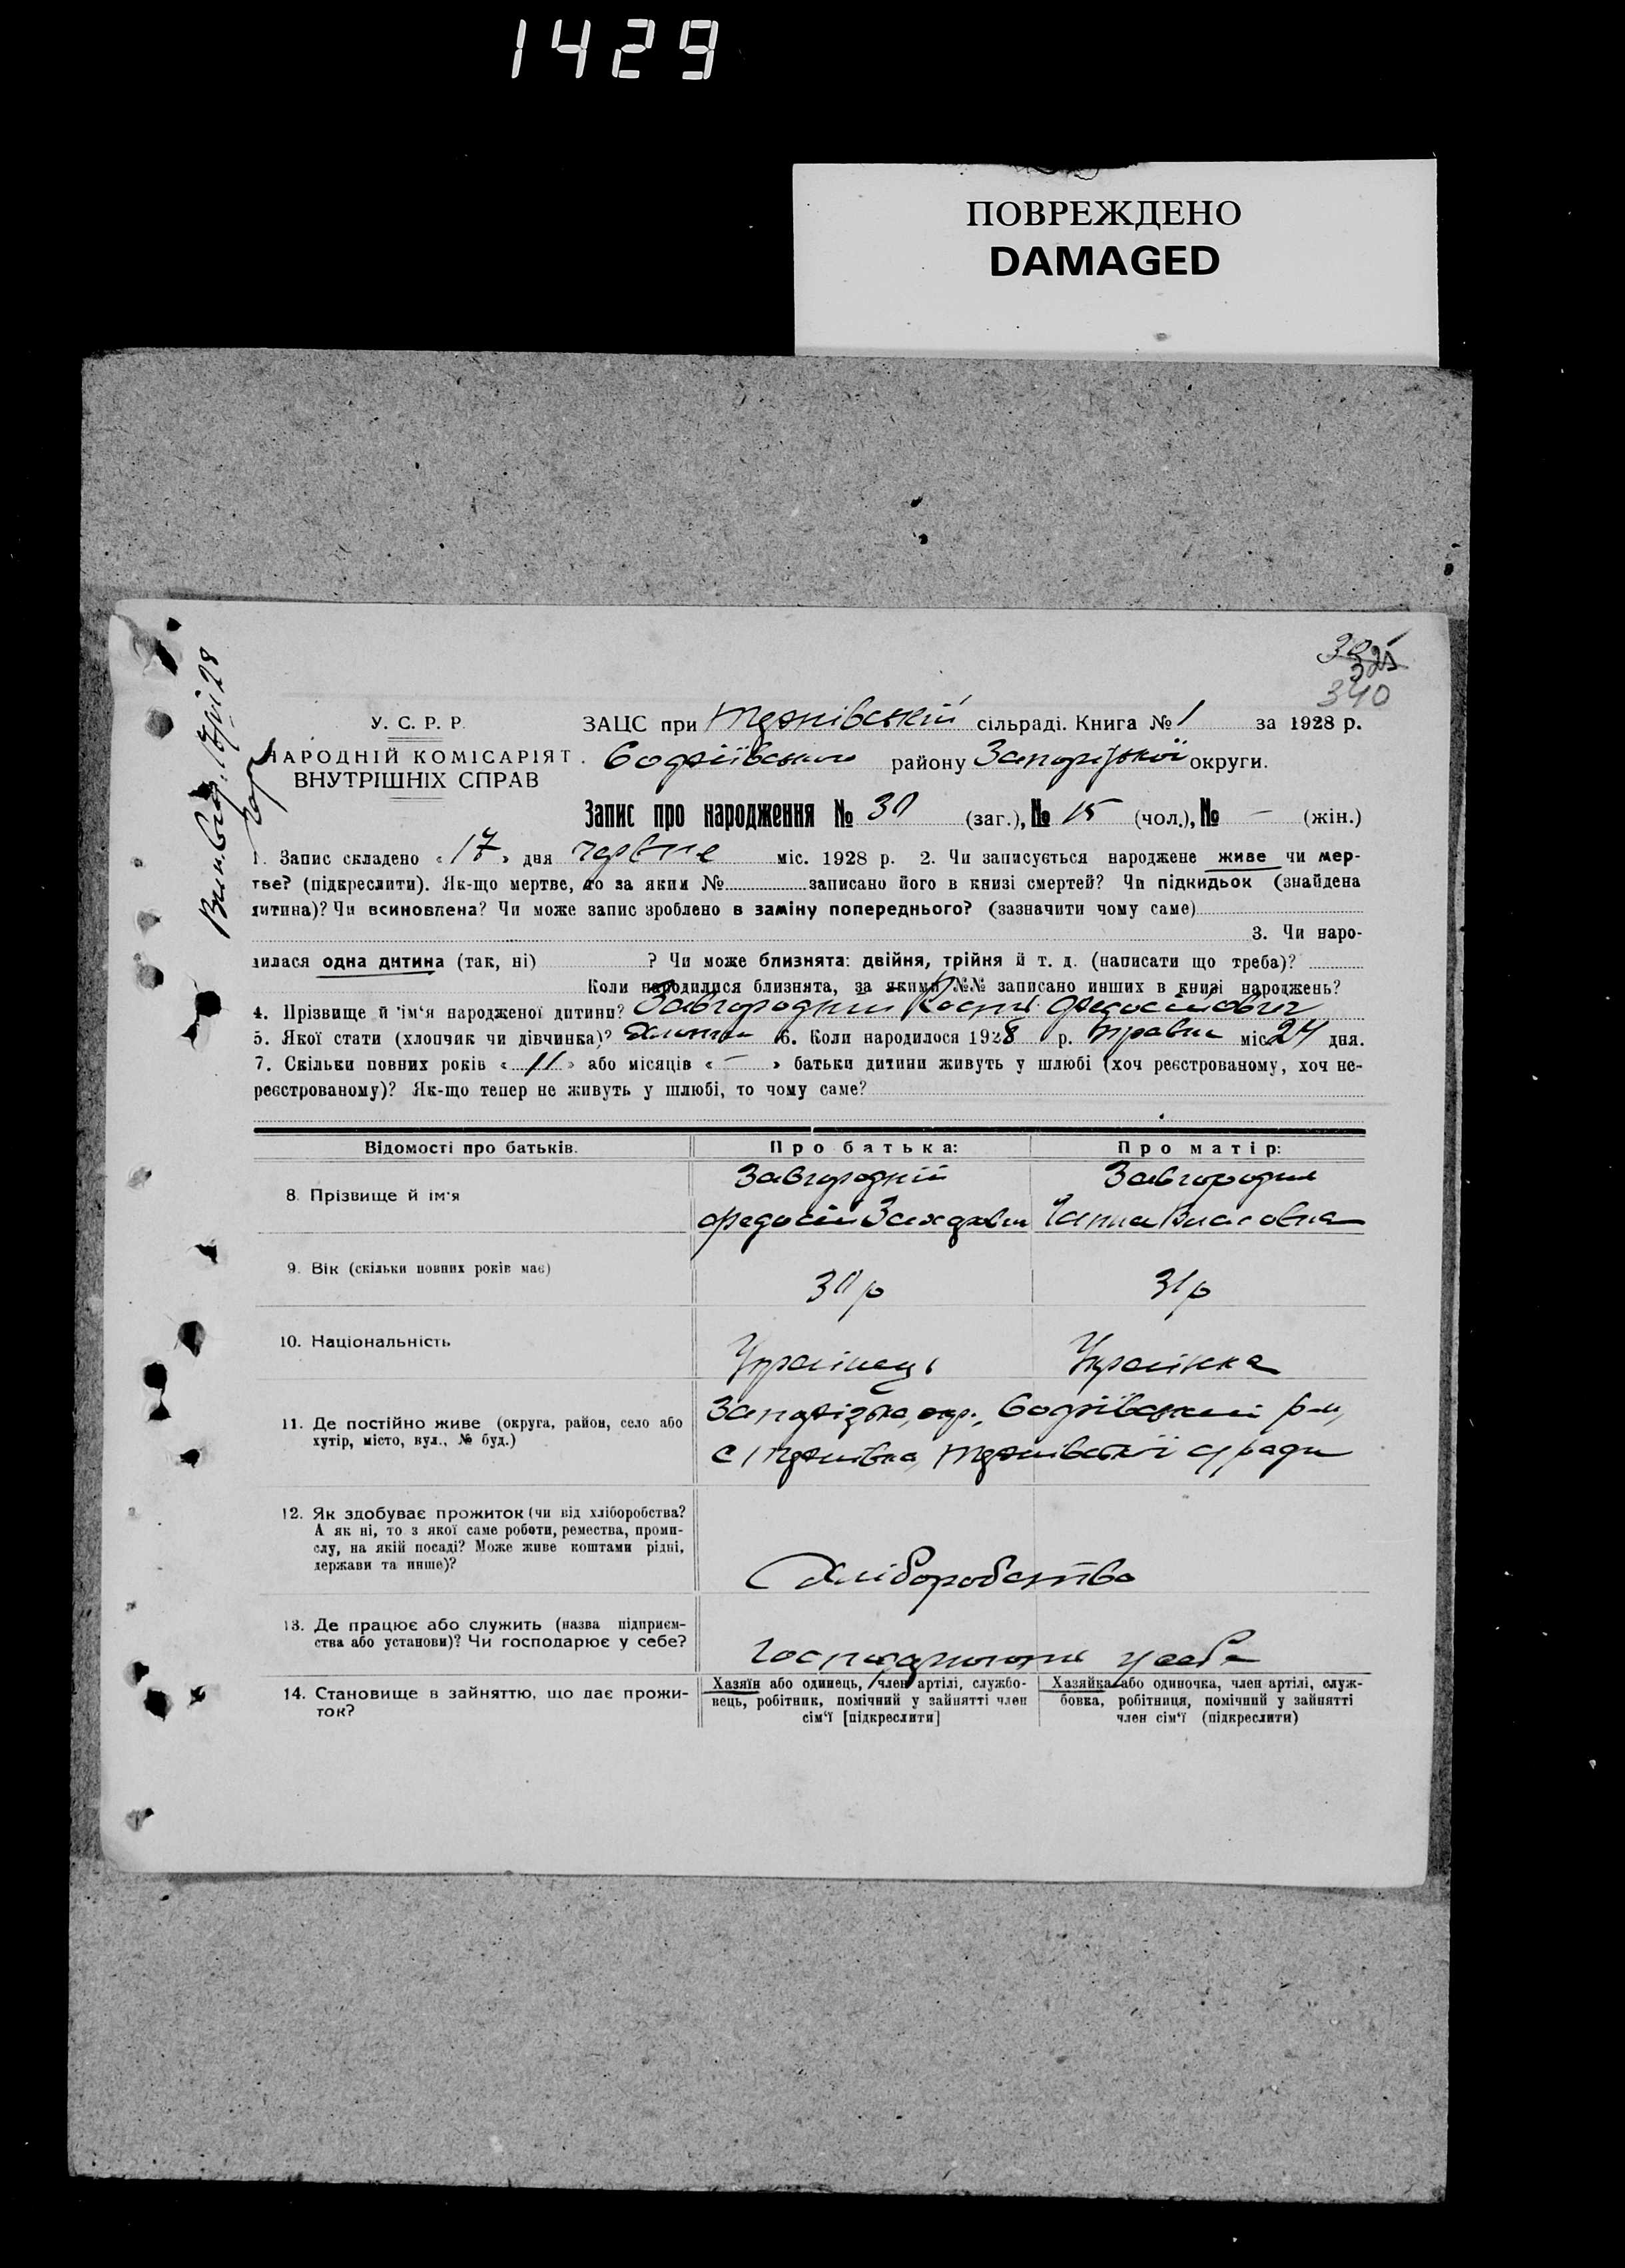 1429
ПОВРЕЖДЕНО
DAMAGED
321
340
У. С. Р. Р.
НАРОДНІЙ КОМІСАРІЯТ
ВНУТРІШНІХ СПРАВ
ЗАЦС при сільраді. Книга № 1 за 1928 р.
району Запорізької округи.
Запис про народження № 30 (заг.), № 15 (чол.), № — (жін.)
1. Запис складено «17» дня червне міс. 1928 р. 2. Чи записується народжене живе чи мер-
тве? (підкреслити). Як-що мертве, то за яким № записано його в книзі смертей? Чи підкидьок (знайдена
дитина)? Чи всиновлена? Чи може запис зроблено в заміну попереднього? (зазначити чому саме)
3. Чи наро-
дилася одна дитина (так, ні) ? Чи може близнята: двійня, трійня й т. д. (написати що треба)?
Коли народилися близнята, за якими №№ записано инших в книзі народжень?
4. Прізвище й ім'я народженої дитини? Завгородний Федосійович
5. Якої стати (хлопчик чи дівчинка)? 6. Коли народилося 1928 р. травня міс. 24 дня.
7. Скільки повних років «11» або місяців «—» батьки дитини живуть у шлюбі (хоч реєстрованому, хоч не-
реєстрованому)? Як-що тепер не живуть у шлюбі, то чому саме?
Відомості про батьків. Про батька: Про матір:
8. Прізвище й ім'я
Завгородній Завгородня
Федосій Ганна Власовна
9. Вік (скільки повних років має)
30 р 31 р
10. Національність
Українець Українка
11. Де постійно живе (округа, район, село або
хутір, місто, вул., № буд.)
Запорізька, окр., р-н,
с/ ради
12. Як здобуває прожиток (чи від хліборобства?
А як ні, то з якої саме роботи, ремества, проми-
слу, на якій посаді? Може живе коштами рідні,
держави та инше)?
Хліборобство
13. Де працює або служить (назва підприєм-
ства або установи)? Чи господарює у себе?
у себе
14. Становище в зайняттю, що дає прожи-
ток?
Хазяїн або одинець, член артілі, службо-
вець, робітник, помічний у зайнятті член
сім'ї [підкреслити]
Хазяйка або одиночка, член артілі, служ-
бовка, робітниця, помічний у зайнятті
член сім'ї (підкреслити)